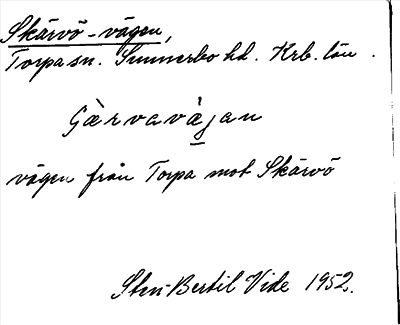 Skärvö-vägen,
Torpa sn. Sunnerbo hd. Krb. län.
Gàrvavàjan
vägen från Torpa mot Skärvö
Sten-Bertil Vide 1952.